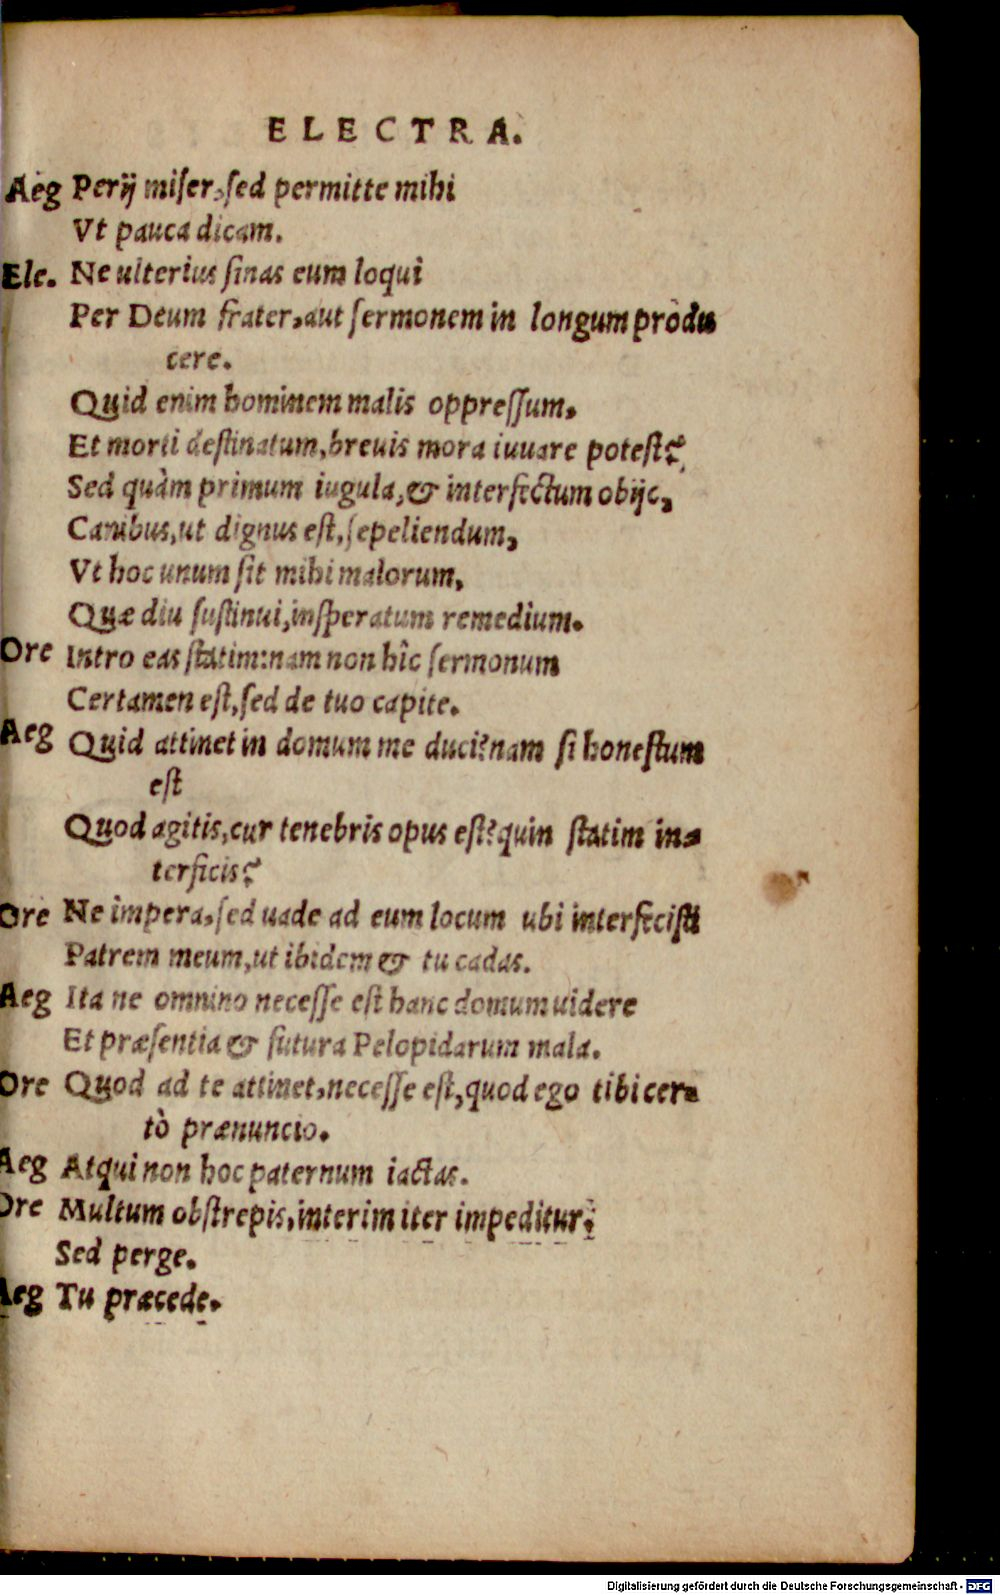 ELECTRA.
Aeg Perij miser, sed permitte mihi
Vt pauca dicam.
Ele. Ne ulterius sinas eum loqui
Per Deum frater, aut sermonem in longum produ
cere.
Quid enim hominem malis oppressum,
Et morti destinatum, breuis mora iuuare potest?
Sed quàm primum iugula, & interfectum obijc,
Canibus, ut dignus est, sepeliendum,
Vt hoc unum sit mihi malorum,
Quæ diu sustinui, insperatum remedium.
Ore Intro eas statim: nam non hîc sermonum
Certamen est, sed de tuo capite.
Aeg Quid attinet in domum me duci? nam si honestum
est
Quod agitis, cur tenebris opus est? quin statim in-
terficis?
Ore Ne impera, sed uade ad eum locum ubi interfecisti
Patrem meum, ut ibidem & tu cadas.
Aeg Ita ne omnino necesse est hanc domum uidere
Et præsentia & futura Pelopidarum mala.
Ore Quod ad te attinet, necesse est, quod ego tibi cer-
tò prænuncio.
Aeg Atqui non hoc paternum iactas.
Ore Multum obstrepis, interim iter impeditur:
Sed perge.
Aeg Tu præcede.
Digitalisierung gefördert durch die Deutsche Forschungsgemeinschaft - DFG